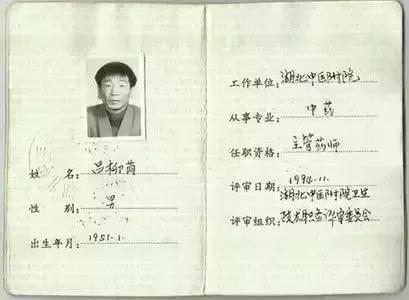 姓 名: 吕柳荫
性 别: 男
出生年月: 1951.1.
工作单位: 湖北中医附院
从事专业: 中药
任职资格: 主管药师
评审日期: 1994.11.
湖北中医附院卫生
评审组织: 技术职务评审委员会